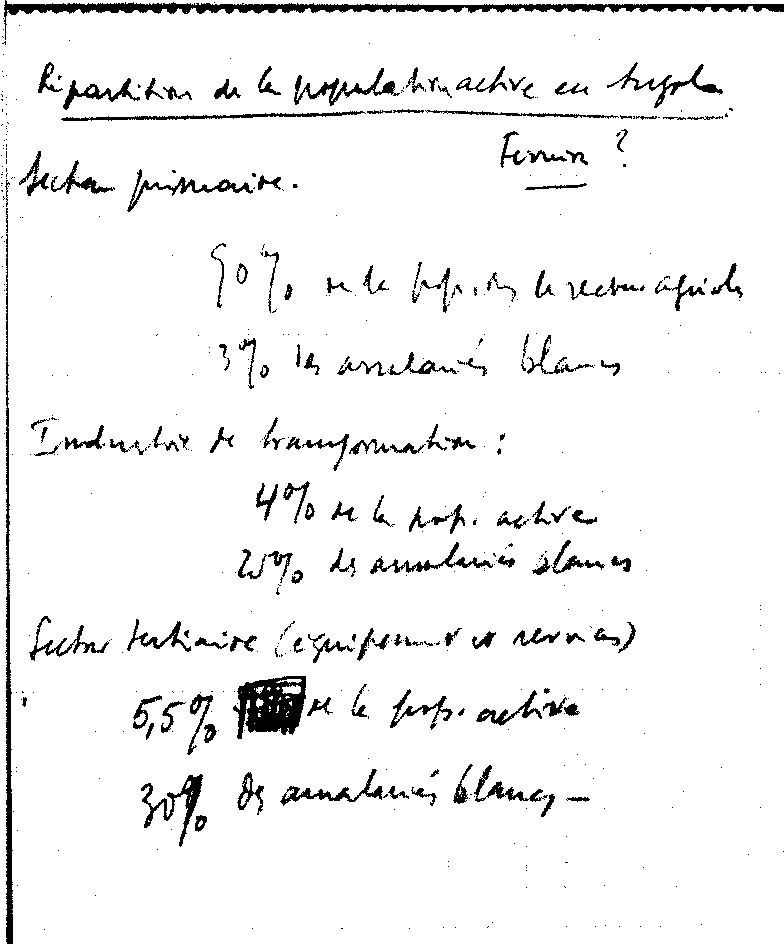 Répartition de la population active en Angola
Femmes ?
Secteur primaire.
90% de la pop. ds le secteur agricole
3% des assalariés blancs
Industrie de transformation :
4% de la pop. active
20% des assalariés blancs
Secteur tertiaire (équipement et services)
5,5% de la pop. active
30% des assalariés blancs –